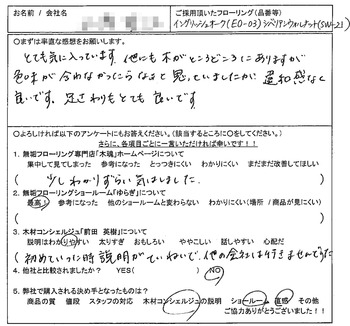 お名前 / 会社名
ご採用頂いたフローリング(品番等)
イングリッシュオーク(EO-03) シベリアンウォルナット(SW-21)
○まずは率直な感想をお願いします。
とても気に入っています。他にも木がところどころにありますが
色味が合わなかったらなぁと思っていましたが違和感なく
良いです。足ざわりもとても良いです
○よろしければ以下のアンケートにもお答えください。(該当するところに○をしてください。)
さらに、各項目ごとに一言いただければ幸いです!!
1. 無垢フローリング専門店「木魂」ホームページについて
集中して見てしまった 参考になった とっつきにくい わかりにくい まだまだ改善してほしい
( 少しわかりずらい気はしました。 )
2. 無垢フローリングショールーム「ゆらぎ」について
最高! 参考になった 他のショールームと変わらない わかりにくい(場所 / 商品が見にくい)
( )
3. 木材コンシェルジュ「前田 英樹」について
説明はわかりやすい 太りすぎ おもしろい ややこしい 話しやすい 心配だ
(初めていった時説明がていねいで、他の会社は行きませんでした)
4. 他社と比較されましたか? YES( ) NO
5. 弊社で購入される決め手となったものは?
商品の質 値段 スタッフの対応 木材コンシェルジュの説明 ショールーム 直感 その他
ご協力ありがとうございました!!